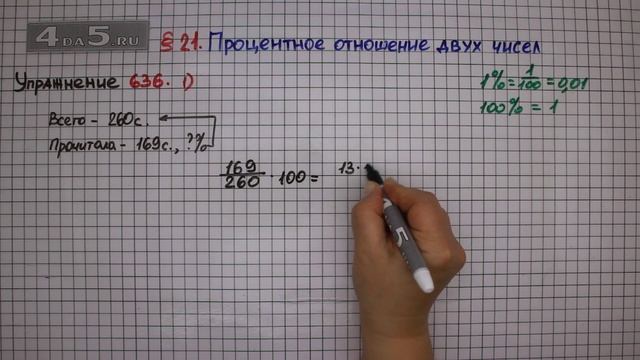 4DA5.RU
§ 21. Процентное отношение двух чисел
Упражнение 636. 1)
1% = 1/100 = 0,01
100% = 1
Всего - 260с.
Прочитала - 169с., ?%
169/260 · 100 = 13 ·
5